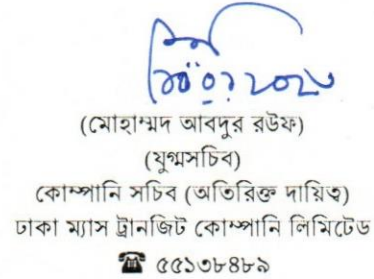 (মোহাম্মদ আবদুর রউফ)
(যুগ্মসচিব)
কোম্পানি সচিব (অতিরিক্ত দায়িত্ব)
ঢাকা ম্যাস ট্রানজিট কোম্পানি লিমিটেড
☎ ৫৫১৩৮৪৮৯